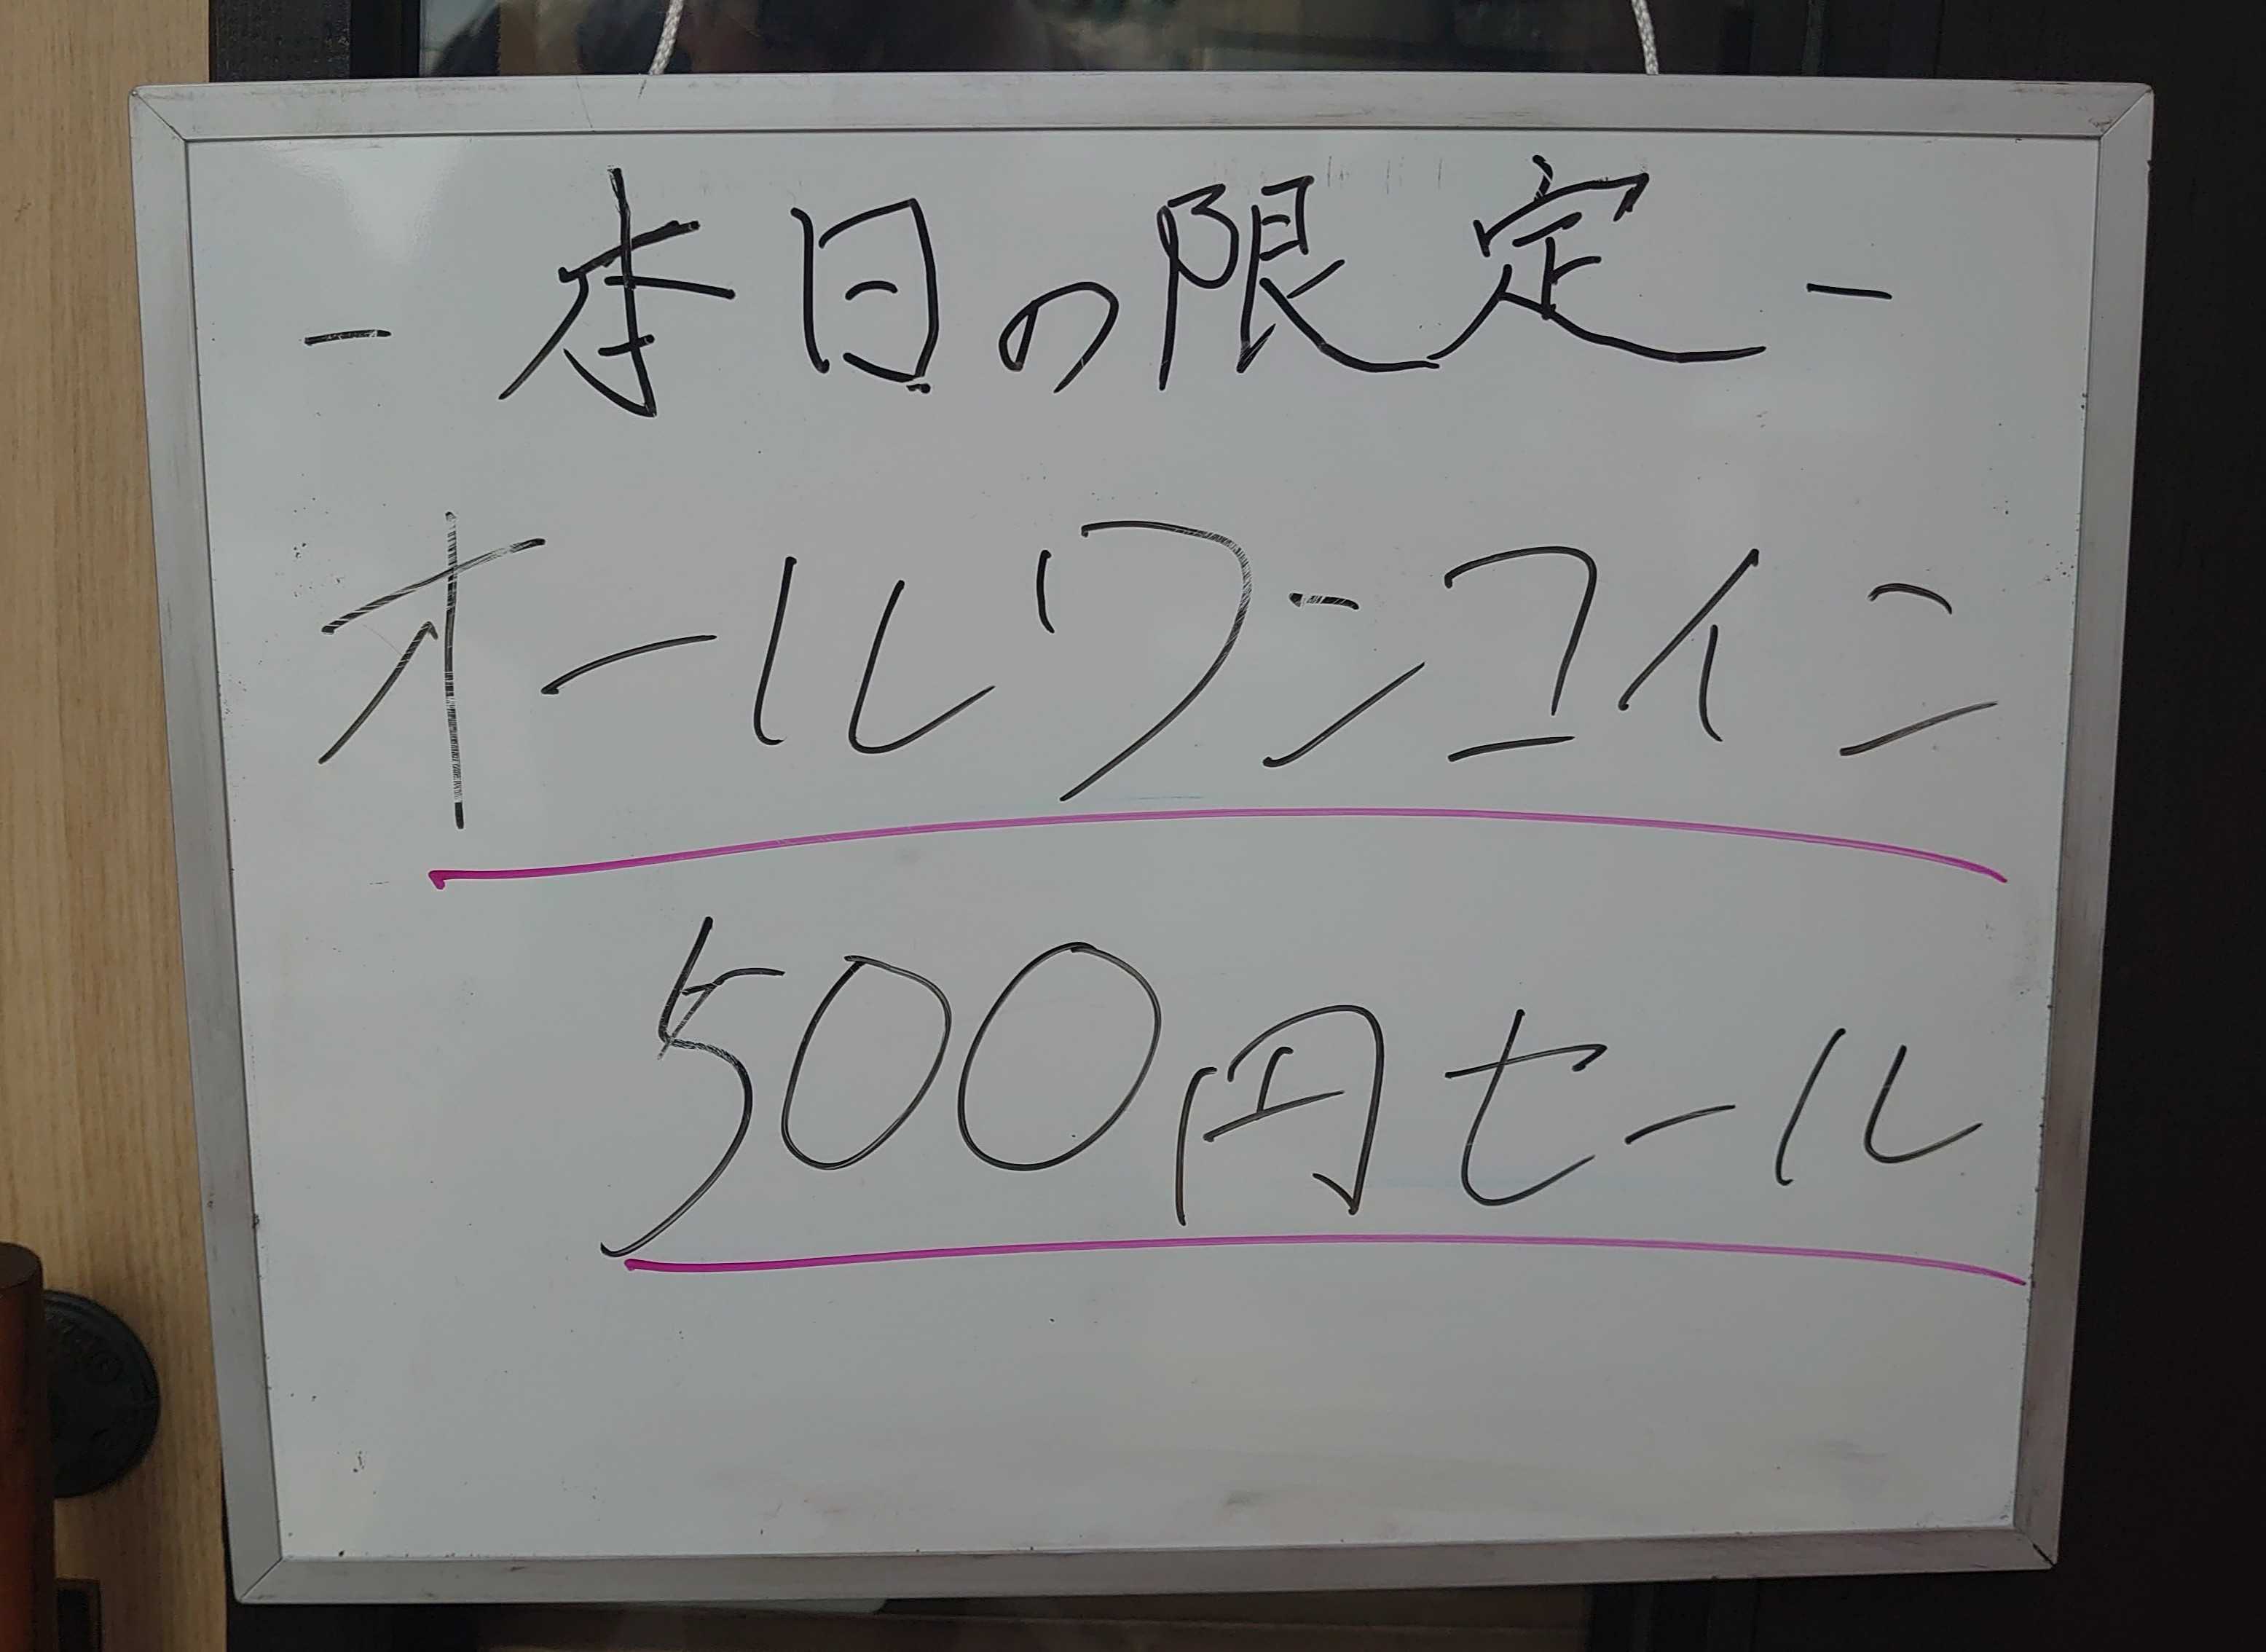 - 本日の限定 -
オールワンコイン
500円セール